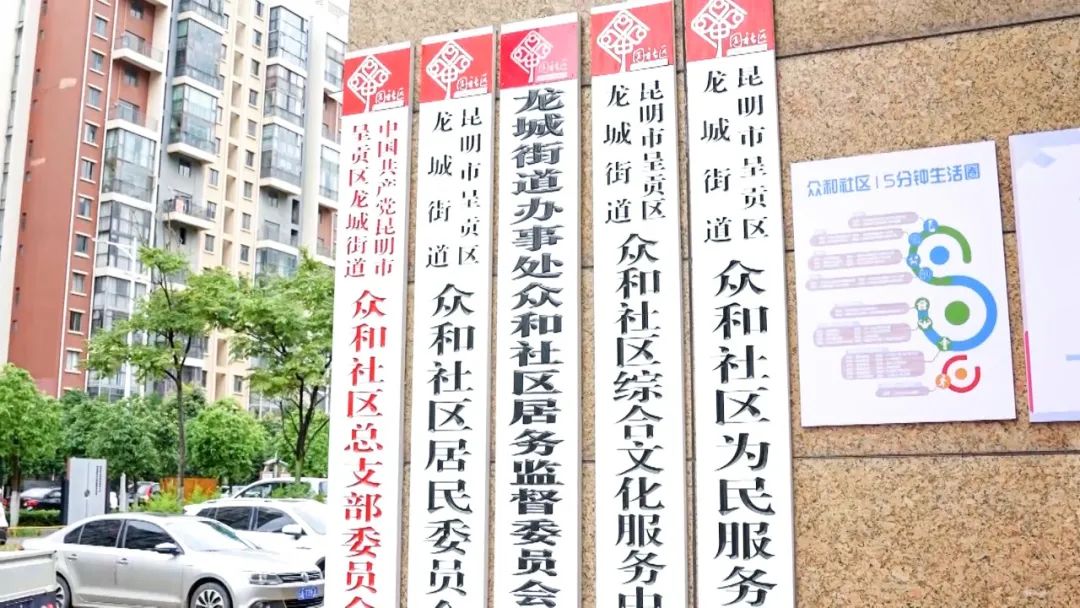 园社区
中国共产党昆明市
呈贡区龙城街道
众和社区总支部委员会
园社区
昆明市呈贡区
龙城街道
众和社区居民委员会
园社区
龙城街道办事处众和社区居务监督委员会
园社区
昆明市呈贡区
龙城街道
众和社区综合文化服务中
园社区
昆明市呈贡区
龙城街道
众和社区为民服务
众和社区15分钟生活圈